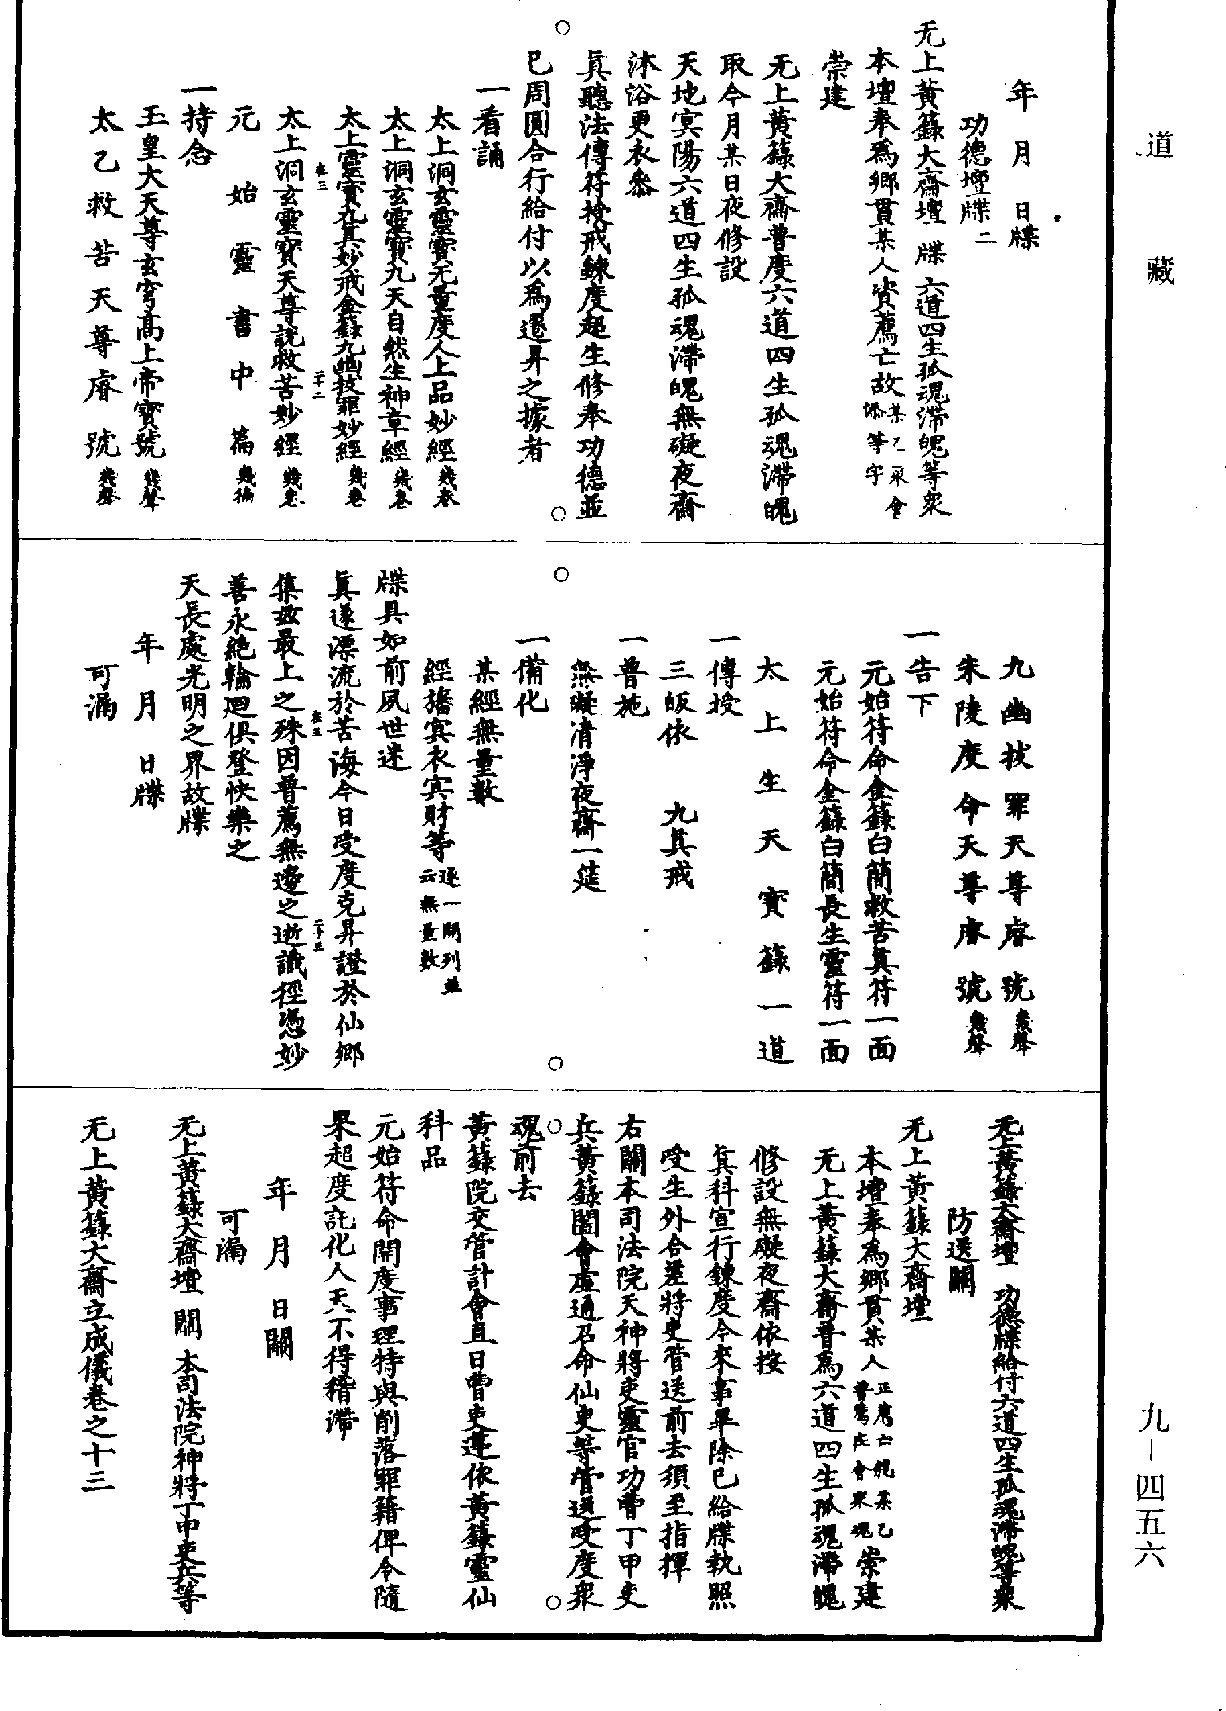 道藏
年月日牒
功德壇牒二
无上黃籙大齋壇　牒　六道四生孤魂滯魄等衆
本壇奉爲鄉貫某人資薦亡故某乙衆會
崇建
无上黃籙大齋普度六道四生孤魂滯魄
取今月某日夜修設
天地冥陽六道四生孤魂滯魄無礙夜齋
沐浴更衣叅
眞聽法傳符授戒鍊度超生修奉功德並
已周圓合行給付以爲遷昇之據者
一看誦
太上洞玄靈寶无量度人上品妙經幾卷
太上洞玄靈寶九天自然生神章經幾卷
太上靈寶九眞妙戒金籙九幽拔罪妙經幾卷
太上洞玄靈寶天尊說救苦妙經幾卷
元始靈書中篇幾徧
一持念
玉皇大天尊玄穹高上帝寶號幾聲
太乙救苦天尊睿號幾聲
九幽拔罪天尊睿號幾聲
朱陵度命天尊睿號幾聲
一告下
元始符命金籙白簡救苦眞符一面
元始符命金籙白簡長生靈符一面
太上生天寶籙一道
一傳授
三皈依　九眞戒
一普施
無礙清淨夜齋一筵
一備化
某經無量數
經旛冥衣冥財等逐一開列並云無量數
牒具如前夙世迷
眞遂漂流於苦海今日受度克昇證於仙鄉
集玆最上之殊因普薦無邊之逝識徑憑妙
善永絶輪迴俱登快樂之
天長處光明之界故牒
年月日牒
可漏
无上黃籙大齋壇　功德牒給付六道四生孤魂滯魄等衆
防送關
无上黃籙大齋壇
本壇奉爲鄉貫某人正薦亡魂某乙普薦在會衆魂崇建
无上黃籙大齋普爲六道四生孤魂滯魄
修設無礙夜齋依按
眞科宣行鍊度今來事畢除已給牒執照
受生外合差將吏管送前去須至指揮
右關本司法院天神將吏靈官功曹丁甲吏
兵黃籙闔會虛通召命仙吏等管送受度衆
魂前去
黃籙院交管計會直日曹吏遵依黃籙靈仙
科品
元始符命開度事理特與削落罪籍俾令隨
果超度託化人天不得稽滯
年月日關
可漏
无上黃籙大齋壇　關　本司法院神將丁甲吏兵等
无上黃籙大齋立成儀卷之十三
九—四五六